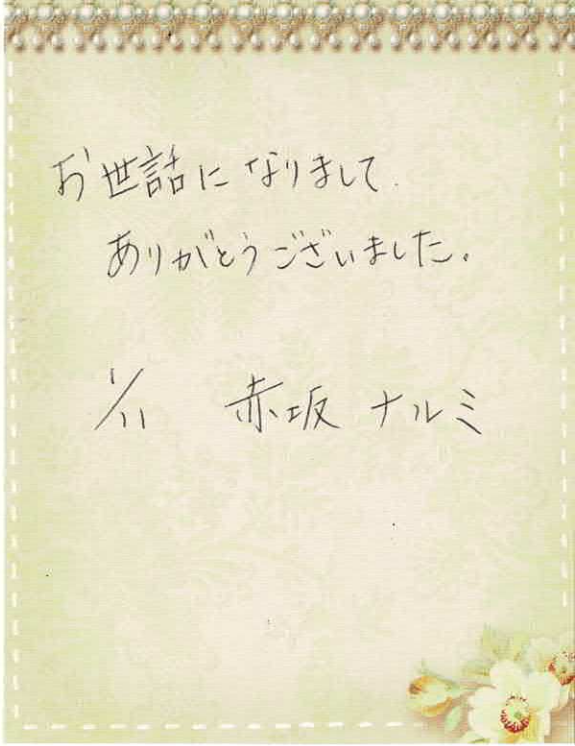 お世話になりまして
ありがとうございました。
1/11 赤坂 ナルミ